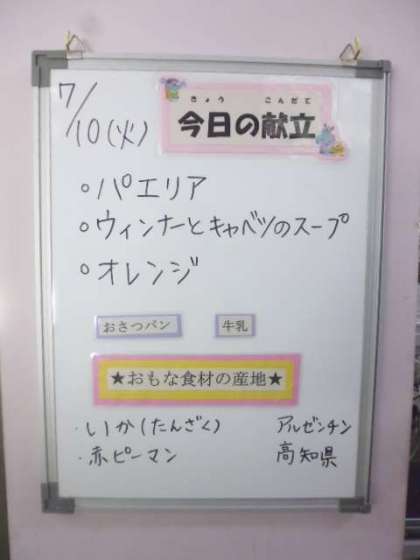 7/10(火)
きょう こんだて
今日の献立
○パエリア
○ウィンナーとキャベツのスープ
○オレンジ
おさつパン 牛乳
★おもな食材の産地★
・いか(たんざく) アルゼンチン
・赤ピーマン 高知県